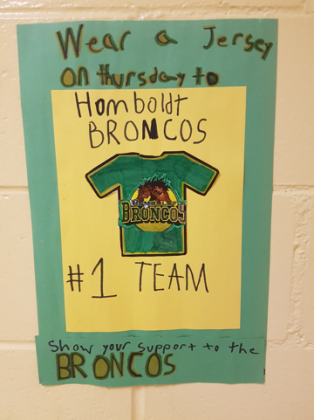 Wear a Jersey
on thursday to
Homboldt
BRONCOS
BRONCOS
#1 TEAM
Show your support to the
BRONCOS